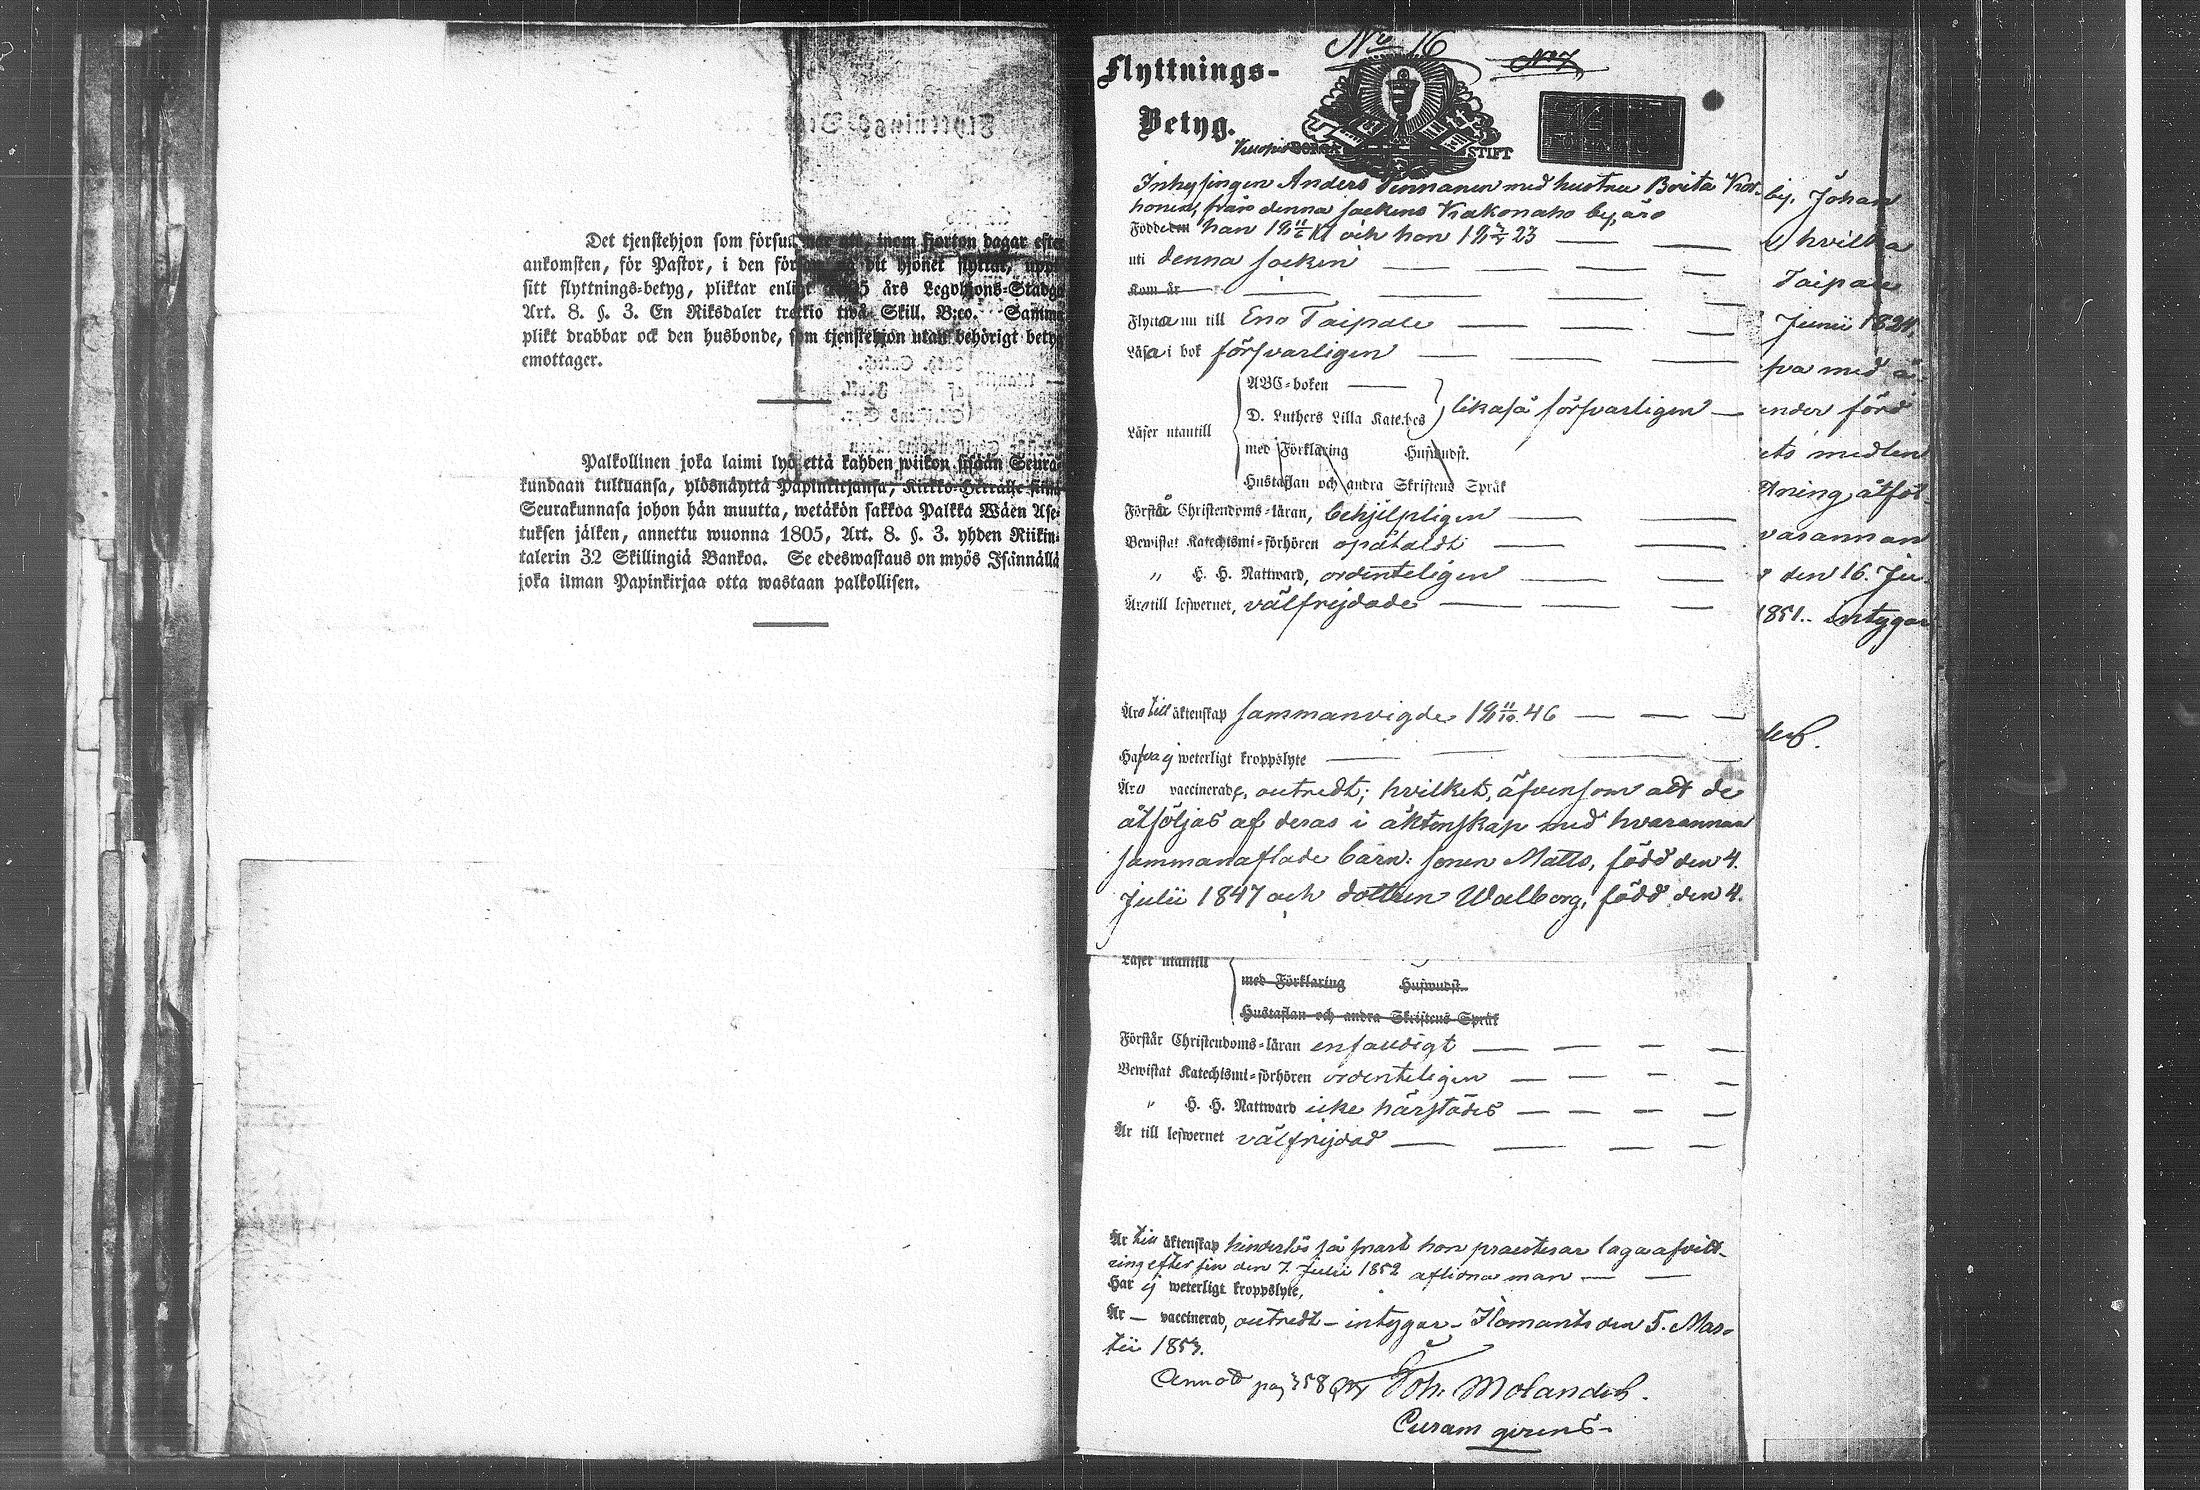 Det tjenstehjon som försum‍mar att, inom fjorton dagar efter
ankomsten, för Pastor, i den för dit hjonet flyttat, upp-
sitt flyttnings-betyg, pliktar enligt 1805 års Legohjons-Stadga
Art. 8. §. 3. En Riksdaler trettio twå Skill. B:co. Samma
plikt drabbar ock den husbonde, som tjenstehjon utan behörigt betyg
emottager.
Palkollinen joka laimi lyö että kahden wiikon sisään Seura-
kundaan tultuansa, ylösnäyttä Papinkirjansa, Kirkko-Herralle siinä
Seurakunnasa johon hän muutta, wetäkön sakkoa Palkka Wäen Ase-
tuksen jälken, annettu wuonna 1805, Art. 8. §. 3. yhden Riikin-
talerin 32 Skillingiä Bankoa. Se edeswastaus on myös Isännällä
joka ilman Papinkirjaa otta wastaan palkollisen.
No 16
No 7
Flyttnings-
Betyg.
Kuopio STIFT
Inhysingen Anders Tennanen med hustru Brita Kor-
honen, från denna sockens Kakonaho by, äro
Födde han 18 och hon 18 23
uti denna socken
Kom år
Flytta nu till Eno Taipale
Läsa i bok försvarligen
ABC-boken
D. Luthers Lilla Kateches likaså försvarligen
Läser utantill
med Förklaring Huswudst.
Hustaflan och andra Skriftens Språk
Förstår Christendoms-läran, behjelpligen
Bewistat Katechismi-förhören opåtaldt
" H. H. Nattward, ordenteligen
Äro till lefwernet, välfrejdade
Äro till äktenskap sammanvigde 18 11/10 46
Hafva ej weterligt kroppslyte
Äro vaccinerade, outredt; hvilket, äfvensom att de
åtföljas af deras i äktenskap med hvarannan
sammanaflade barn: sonen Matts, född den 4.
Julii 1847 och dottren Walborg, född den 4.
by, Johan
hvilka
Taipale
Junii 1824,
med
ender förd
ets medlen
ning åtföl-
varannan
den 16. Ju-
1851. intygar
Läser utantill
med Förklaring Huswudst.
Hustaflan och andra Skriftens Språk
Förstår Christendoms-läran enfaldigt
Bewistat Katechismi-förhören ordenteligen
" H. H. Nattward icke härstädes
Är till lefwernet välfrejdad
Är till äktenskap hinderlös så snart hon praesterar laga afvitt-
ring efter sin den 7. Julii 1852 aflidna man
Har ej weterligt kroppslyte,
Är — vaccinerad, outredt – intygar – Ilomants den 5. Mar-
tii 1853.
Annot pag 358 Joh. Molander.
Curam gerens